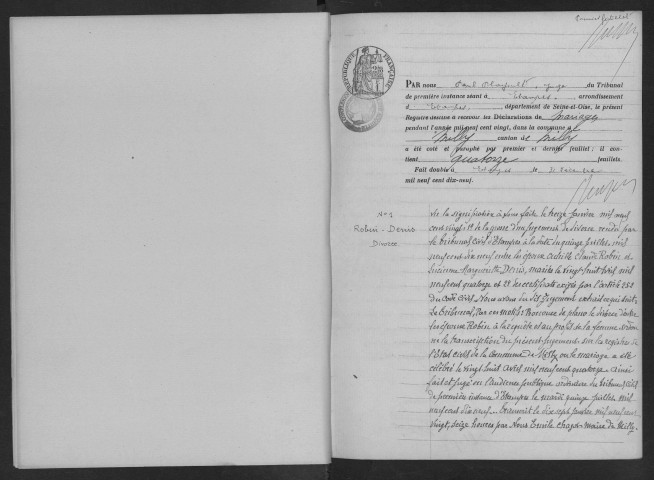 RÉPUBLIQUE FRANÇAISE
PAR nous Paul juge du Tribunal
de première instance séant à Etampes, arrondissement
d'Etampes, département de Seine-et-Oise, le présent
Registre destiné à recevoir les Déclarations de Mariages
pendant l'année mil neuf cent vingt, dans la commune de
Milly canton de Milly
a été coté et paraphé par premier et dernier feuillet; il con-
tient quatorze feuillets.
Fait double à Etampes le Décembre
mil neuf cent dix-neuf.
N° 1
Robin - Denis
Divorce
Vu la signification à nous faite le treize Janvier mil neuf
cent vingt 1° de la grosse d'un jugement de divorce rendu par
le tribunal civil d'Etampes à la date du quinze Juillet mil
neuf cent dix neuf entre les époux Claude Robin et
Lucienne Marguerite Denis, mariés le vingt huit avril mil
neuf cent quatorze et 2° des certificats exigés par l'article 252
du Code Civil. Nous avons du dit Jugement extrait ce qui suit:
Le tribunal, Par ces motifs Prononce de plano le divorce d'entre
les époux Robin à la requête et au profit de la femme ordon
ne la transcription du présent jugement sur les registres de
l'Etat civil de la commune de Milly où le mariage a été
célébré le vingt huit avril mil neuf cent quatorze. Ainsi
fait et jugé en l'audience publique ordinaire du tribunal civil
de première instance d'Etampes le mardi quinze Juillet mil
neuf cent dix neuf. Transcrit le dix sept Janvier mil neuf cent
vingt, seize heures par Nous Emile maire de Milly.